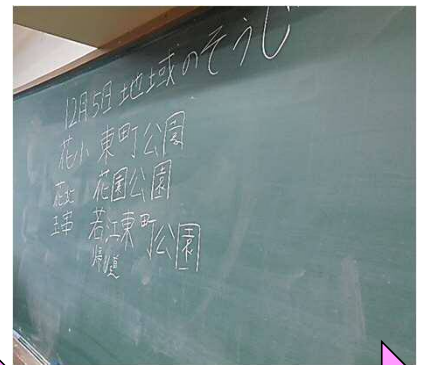 12月5日 地域のそうじ
花小 東町公園
花北 花園公園
玉串 若江東町公園
帰道